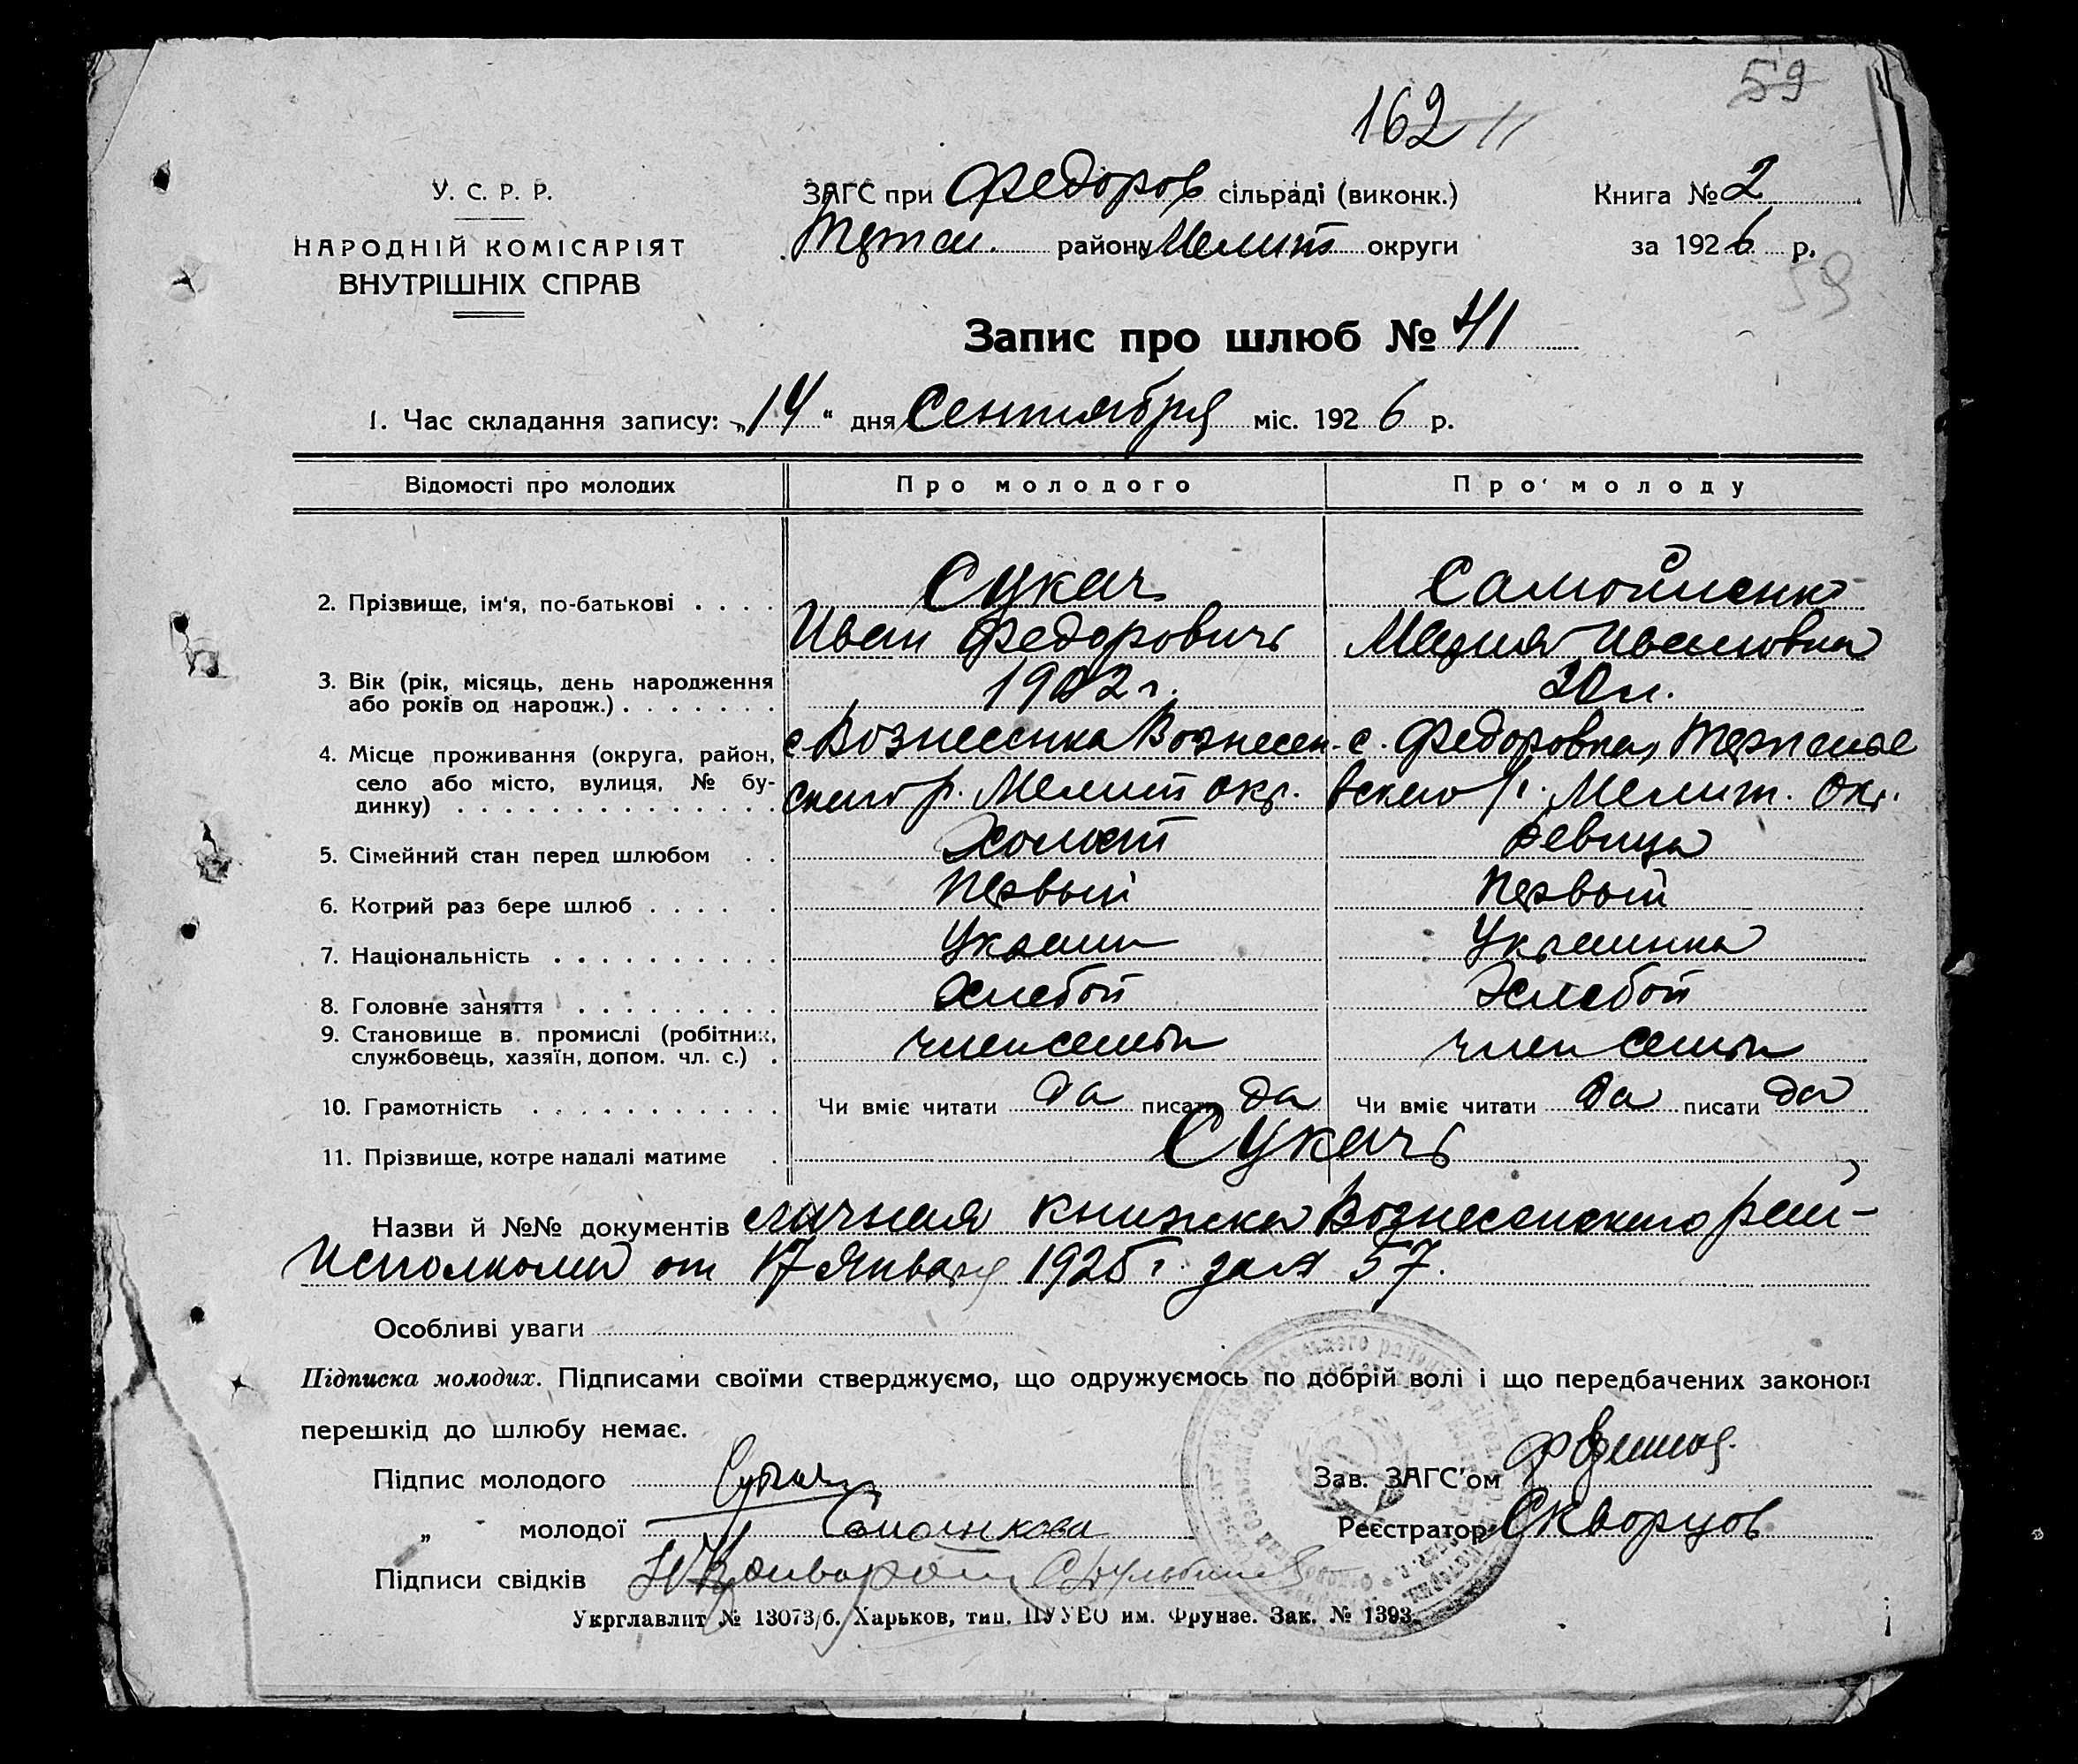 59
162
У. С. Р. Р.
НАРОДНІЙ КОМІСАРІЯТ
ВНУТРІШНІХ СПРАВ
ЗАГС при Федоров сільраді (виконк.)
району Мелит округи
Книга № 2
за 1926 р.
59
Запис про шлюб № 41
1. Час складання запису: „14“ дня Сентября міс. 1926 р.
Відомості про молодих Про молодого Про молоду
2. Прізвище, ім'я, по-батькові . . . . Сукач Самойленко
Иван Федорович Мария Ивановна
3. Вік (рік, місяць, день народження
або років од народж.) . . . . . . . 1902 г. 20 л.
4. Місце проживання (округа, район, с Вознесенка Вознесен- с. Федоровка,
село або місто, вулиця, № бу-
динку) . . . . . . . . . . . . . ского р. Мелит окр. вского р. Мелит. Окр.
5. Сімейний стан перед шлюбом . . Холост девица
6. Котрий раз бере шлюб . . . . . . Первый Первый
7. Національність . . . . . . . . . . Украин Украинка
8. Головне заняття . . . . . . . . . Хлебоп Хлебоп
9. Становище в промислі (робітник,
службовець, хазяїн, допом. чл. с.) . член семьи член семьи
10. Грамотність . . . . . . . . . . . Чи вміє читати да писати да Чи вміє читати да писати да
11. Прізвище, котре надалі матиме . Сукачь
Назви й №№ документів личная книжка Вознесенского рай-
исполкома от 17 Января 1925 г. за № 57.
Особливі уваги
Підписка молодих. Підписами своїми стверджуємо, що одружуємось по добрій волі і що передбачених законом
перешкід до шлюбу немає.
Підпис молодого Сукач
Зав. ЗАГС'ом
„ молодої
Реєстратор Скворцов
Підписи свідків
Укрглавлит № 13073/б. Харьков, тип. ЦУУЕО им. Фрунзе. Зак. № 1393.